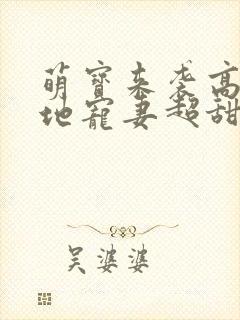 萌寶来袭高
地寵妻超甜
吴婆婆